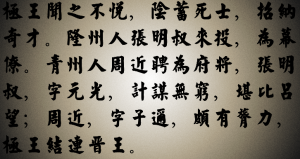 極王聞之不悅，陰蓄死士，括納
奇才。隆州人張明叔來投，為幕
僚。青州人周近聘為府將，張明
叔，字元光，計謀無窮，堪比呂
望；周近，字子邇，頗有膂力，
極王結連晋王。